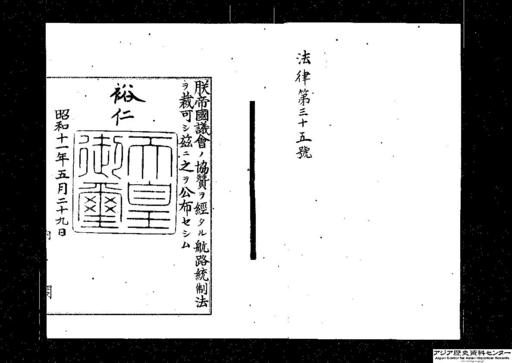 法律第三十五號
朕帝國議會ノ協贊ヲ經タル航路統制法
ヲ裁可シ玆ニ之ヲ公布セシム
裕仁
天皇
御璽
昭和十一年五月二十九日
アジア歴史資料センター
Japan Center for Asian Historical Records